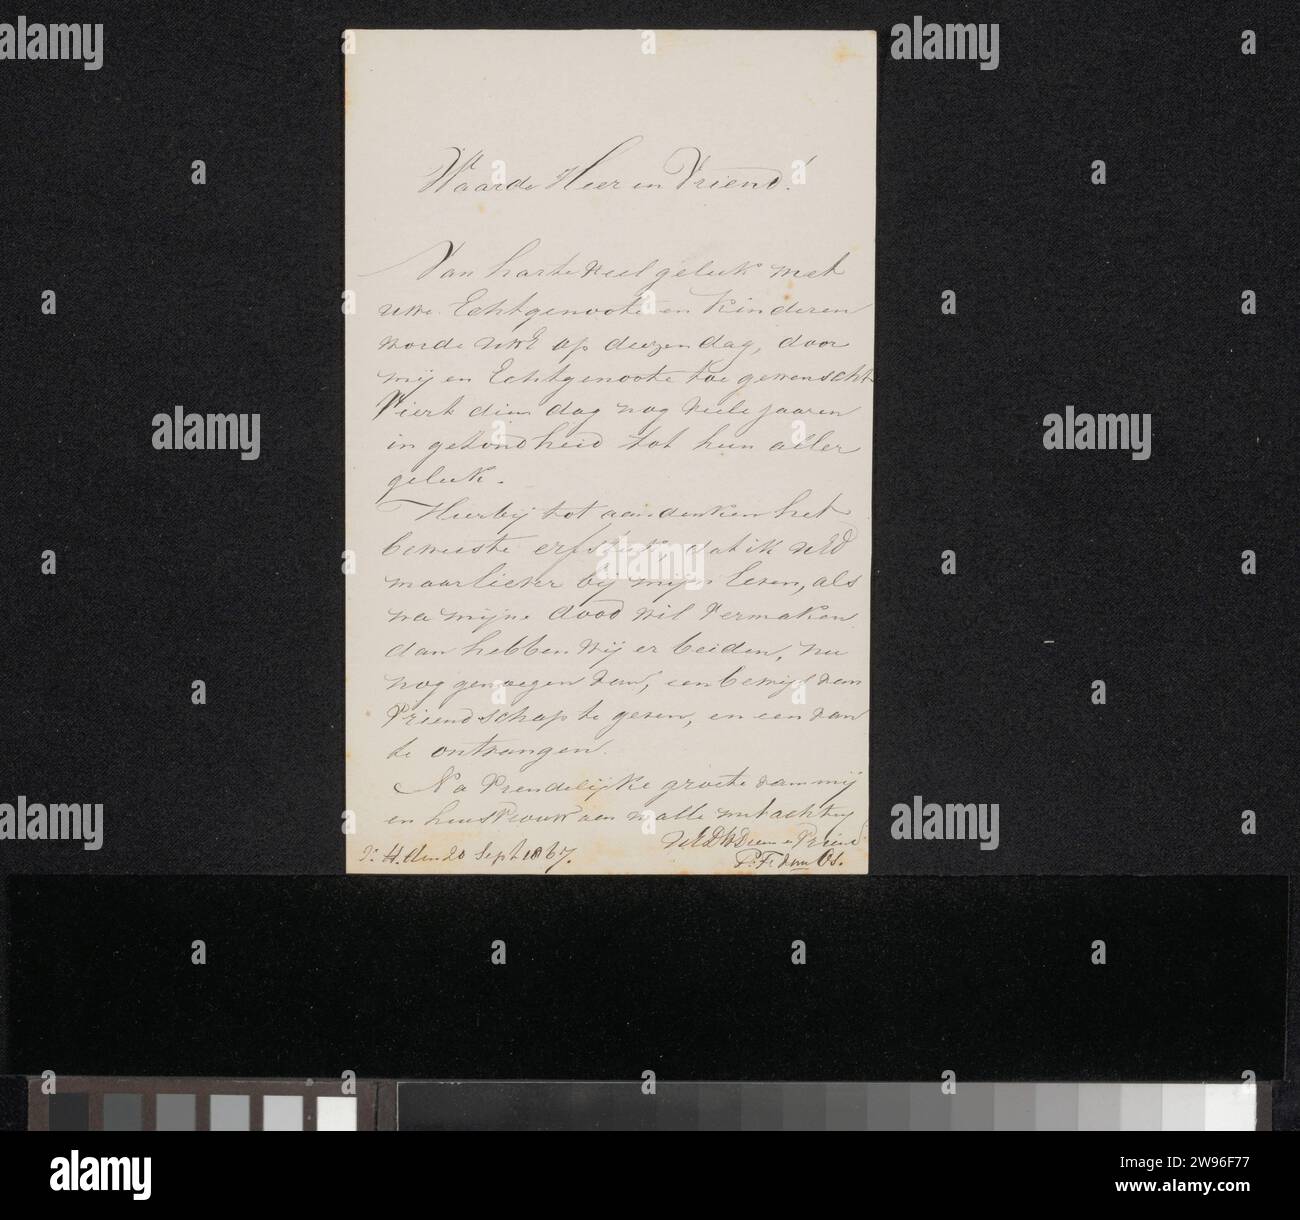 Waarde Heer en Vriend!
Van harte veel geluk met
uwe Echtgenoote en Kinderen
worde UWE op deezen dag, door
mij en Echtgenoote toe gewenscht
Viert dien dag nog veele jaaren
in gezondheid tot hun aller
geluk.
Hierbij tot aandenken het
bewuste erfstuk, dat ik UED
maar liever bij mijn leven, als
na mijne dood wil vermaken
dan hebben wij er beiden, nu
nog genoegen van, een bewijs van
Vriendschap te geven, en een van
te ontvangen.
Na Vrendelijke groete van mij
en huisvrouw aan u alle met achting
UEDW Dienr en Vriend
s'H. den 20 Sept 1867. P. F. van Os.
alamy
Image ID: 2W96F77
www.alamy.com